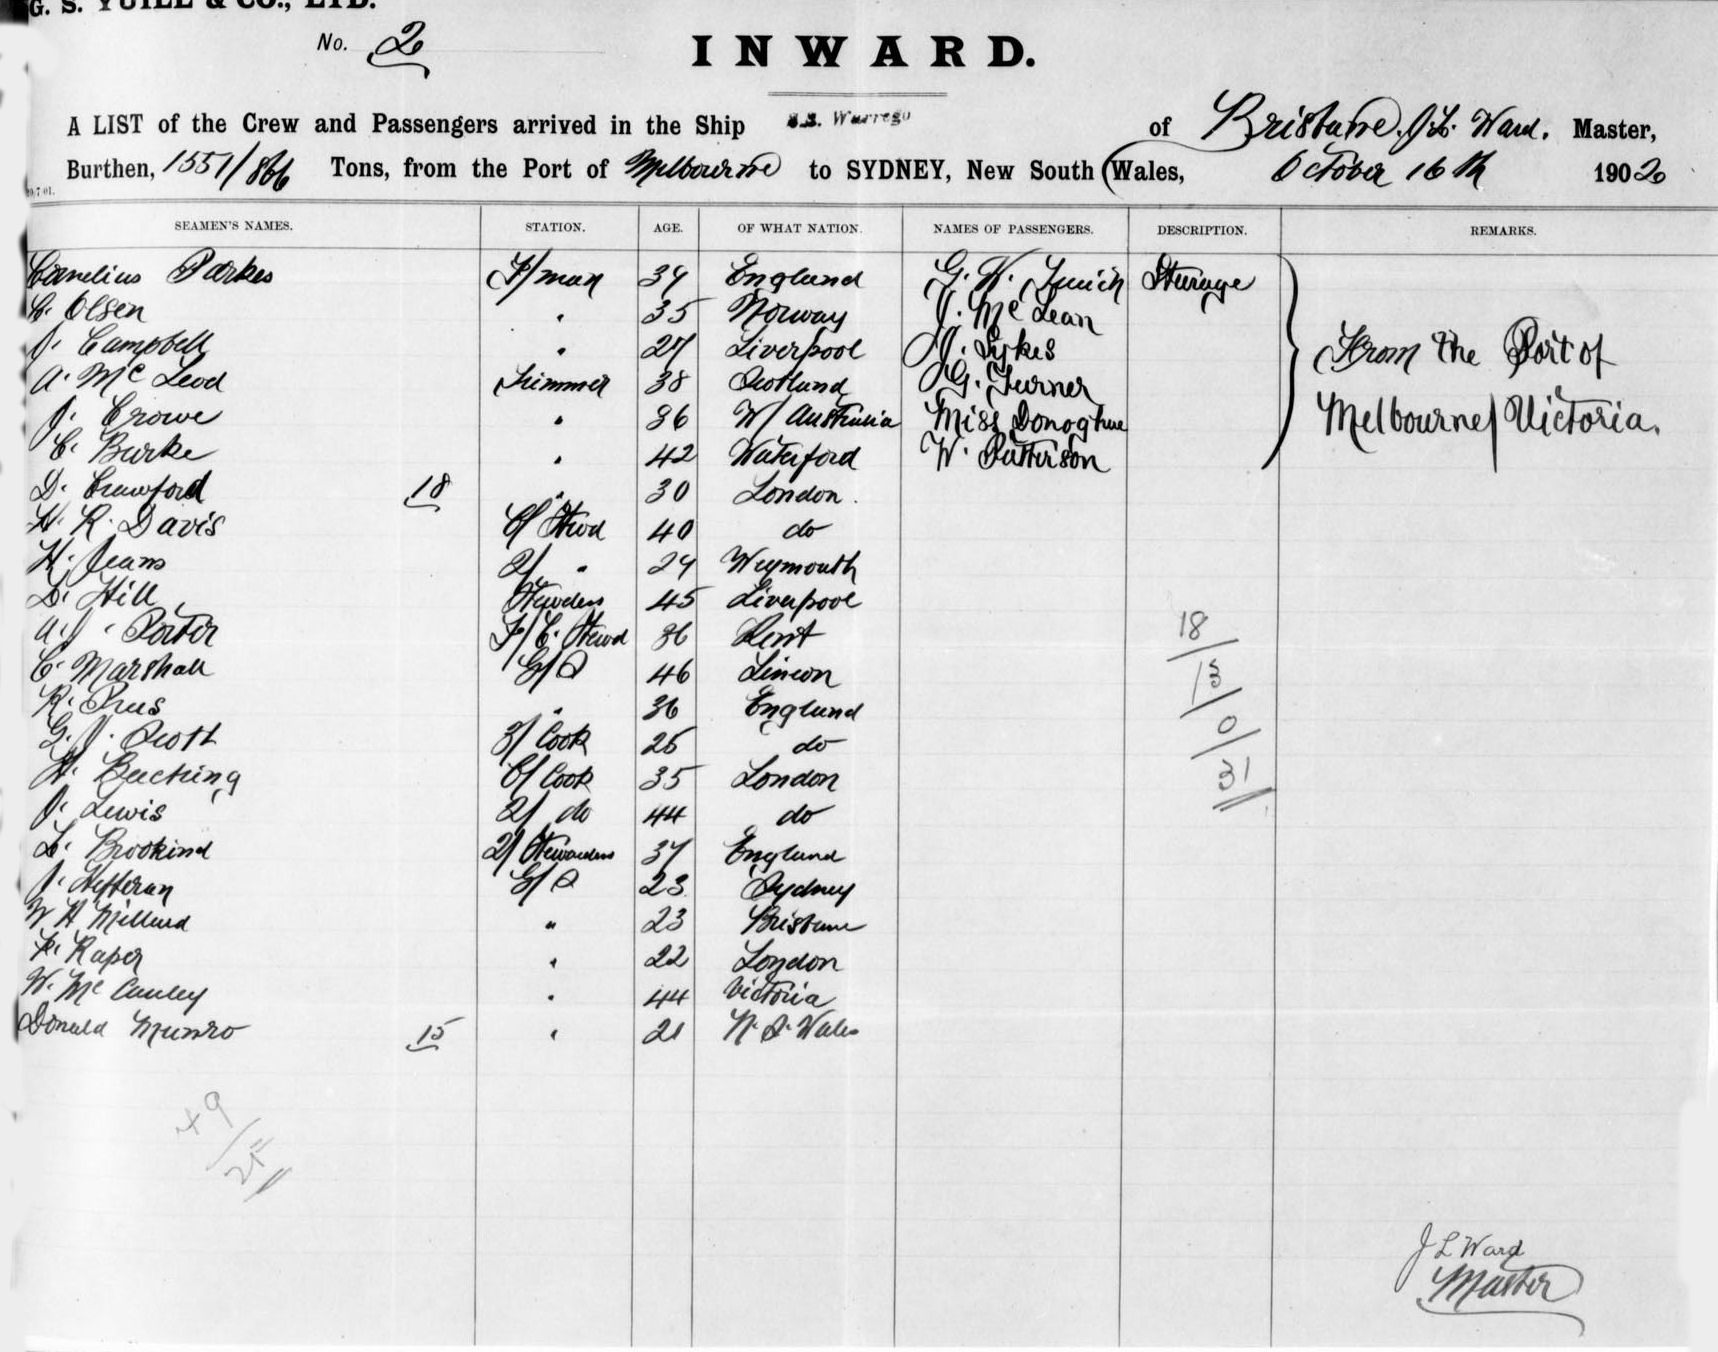 G. S. YUILL & CO., LTD.
No. 2
INWARD.
A LIST of the Crew and Passengers arrived in the Ship S.S. Warrego of Brisbane, J. L. Ward, Master,
Burthen, 1551/866 Tons, from the Port of Melbourne to SYDNEY, New South Wales, October 16th 1902
SEAMEN'S NAMES. STATION. AGE. OF WHAT NATION. NAMES OF PASSENGERS. DESCRIPTION. REMARKS.
Cornelius Parkes F/man 34 England G. W. Steerage
C. Olsen " 35 Norway J. McLean
J. Campbell " 27 Liverpool J. Sykes From the Port of
A. McLeod Trimmer 38 Scotland G. Turner
J. Crowe " 36 W/ Australia Miss Donoghue Melbourne/Victoria.
C. Burke " 42 Waterford W. Patterson
D. Crawford 18 " 30 London.
H. R. Davis C/ Stwd 40 do
H. Jeans 2/ " 24 Weymouth
D. Hill Stewdess 45 Liverpool
A. J. Porter F/C. Stewd 36 Kent 18
C. Marshall G/S 46 Lincon 13
R. " 36 England 0
G. J. Scott 3/ Cook 25 do
H. Beeching C/ Cook 35 London 31
J. Lewis 2/ do 44 do
L. Brookind 2/ Stewardess 37 England
J. Hefferan G/S 23 Sydney
W H Millard " 23 Brisbane
F. Raper " 22 London
W. McCauley " 44 Victoria
Donald Munro 15 " 21 N. S. Wales
J L Ward
Master